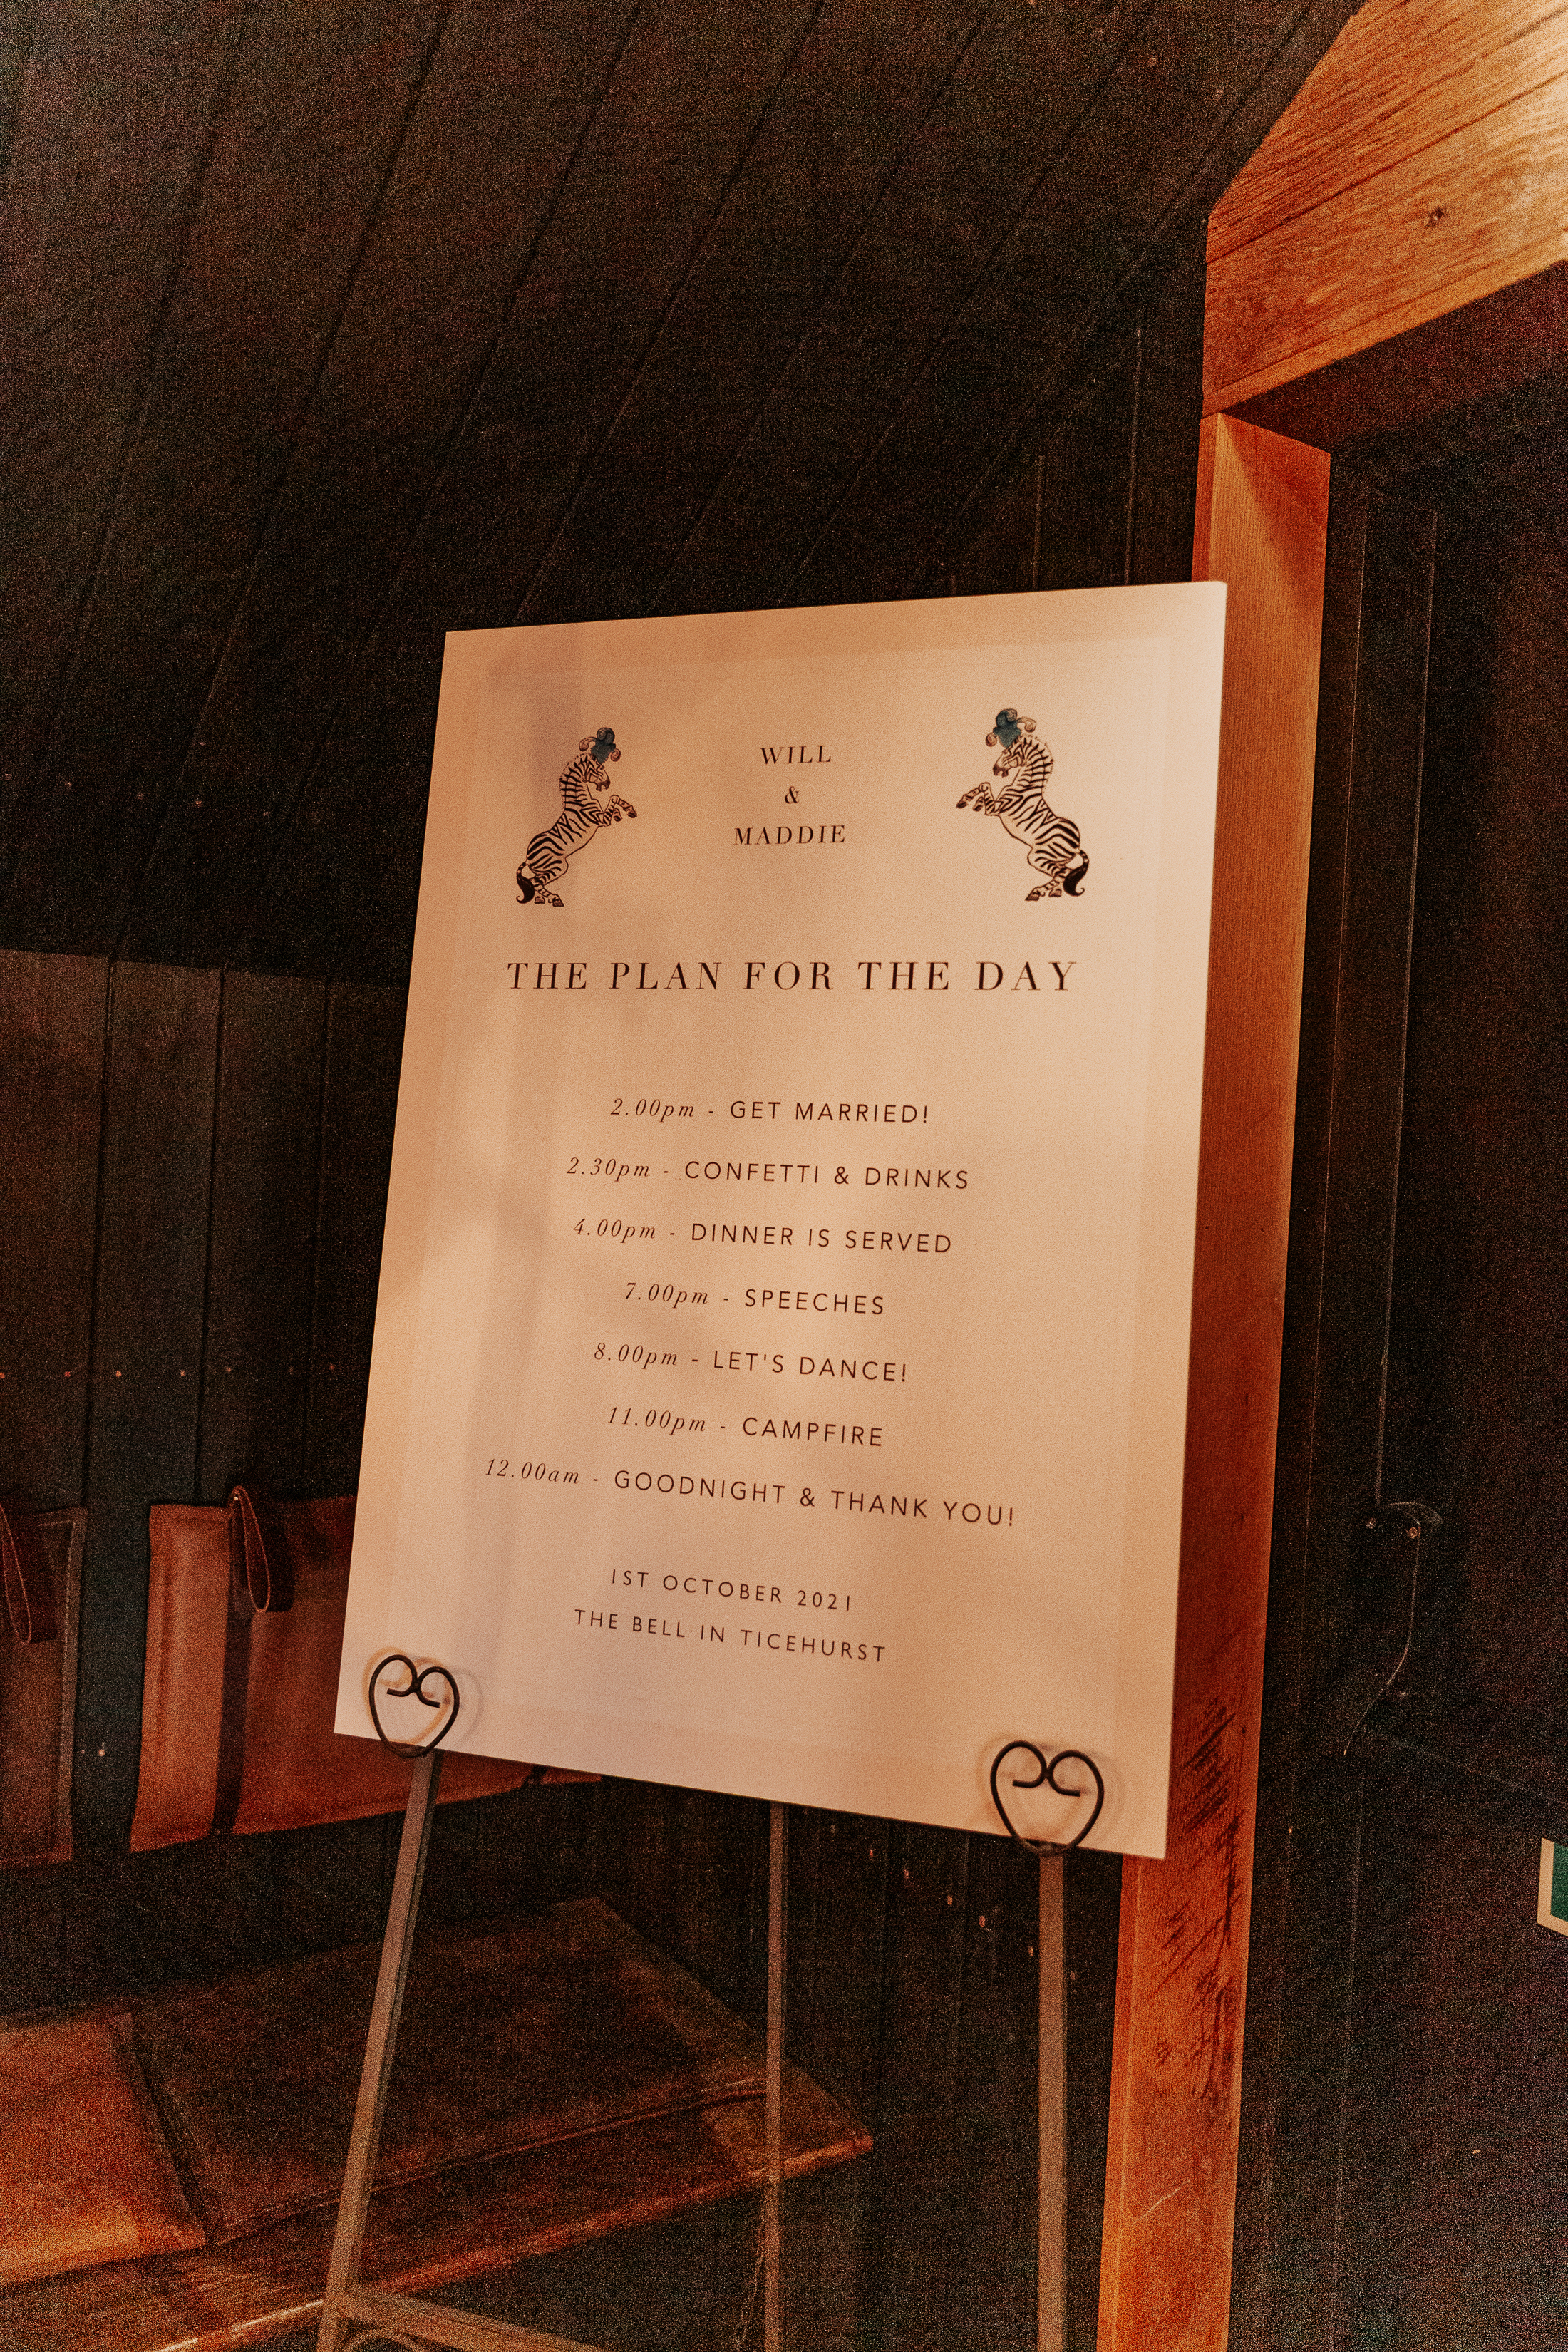 WILL
&
MADDIE
THE PLAN FOR THE DAY
2.00pm - GET MARRIED!
2.30pm - CONFETTI & DRINKS
4.00pm - DINNER IS SERVED
7.00pm - SPEECHES
8.00pm - LET'S DANCE!
11.00pm - CAMPFIRE
12.00am - GOODNIGHT & THANK YOU!
1ST OCTOBER 2021
THE BELL IN TICEHURST